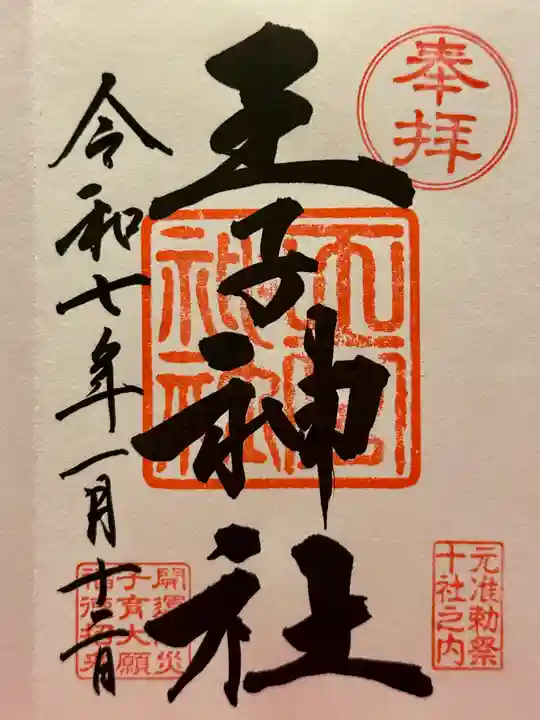 奉拝
王子神社
元准勅祭
十社之内
令和七年一月十二日
開運
子育大願
福徳招来